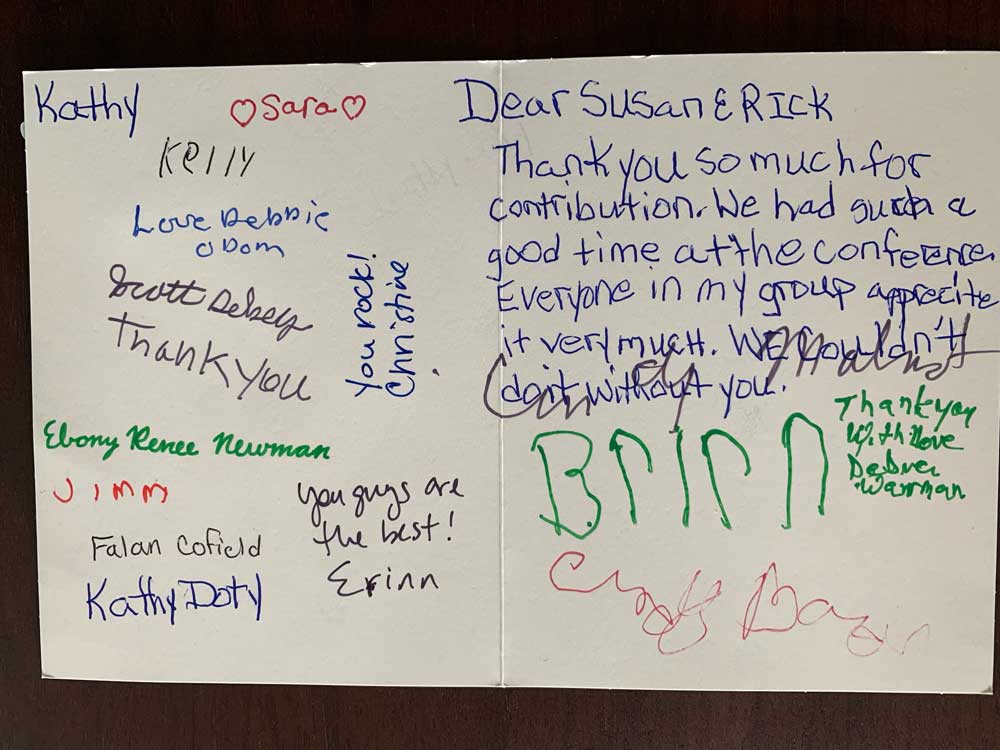 Kathy
♡Sara♡
Kelly
Love Debbie
Odom
Scott
Thank you
You rock!
Christine
Ebony Renee Newman
Jimm
Falan Cofield
Kathy Doty
you guys are
the best!
Erinn
Dear Susan & Rick
Thank you so much for
contribution. We had such a
good time at the conference.
Everyone in my group apprecite
it very much. We couldn't
do it without you.
Thank you
With love
Warman